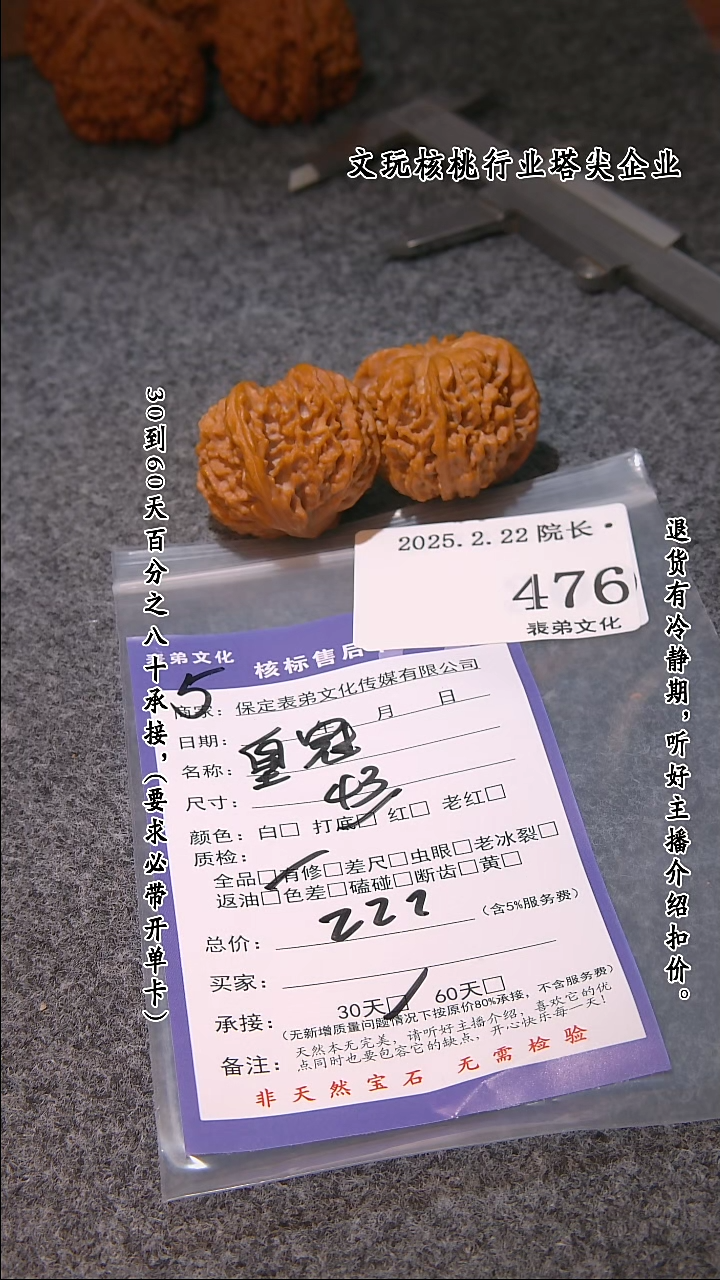 文玩核桃行业塔尖企业
30到60天百分之八十承接，(要求必带开单卡)
退货有冷静期，听好主播介绍扣价。
2025.2.22 院长·
476
表弟文化
表弟文化 核标售后
5
商家：保定表弟文化传媒有限公司
日期： 月 日
名称：皇冠
尺寸：43
颜色：白□ 打底□ 红□ 老红□
质检：
全品□有修□差尺□虫眼□老冰裂□
返油□色差□磕碰□断齿□黄□
总价：222 (含5%服务费)
买家：
承接：30天□ 60天□
(无新增质量问题情况下按原价80%承接，不含服务费)
备注：天然本无完美，请听好主播介绍，喜欢它的优
点同时也要包容它的缺点，开心快乐每一天！
非天然宝石 无需检验